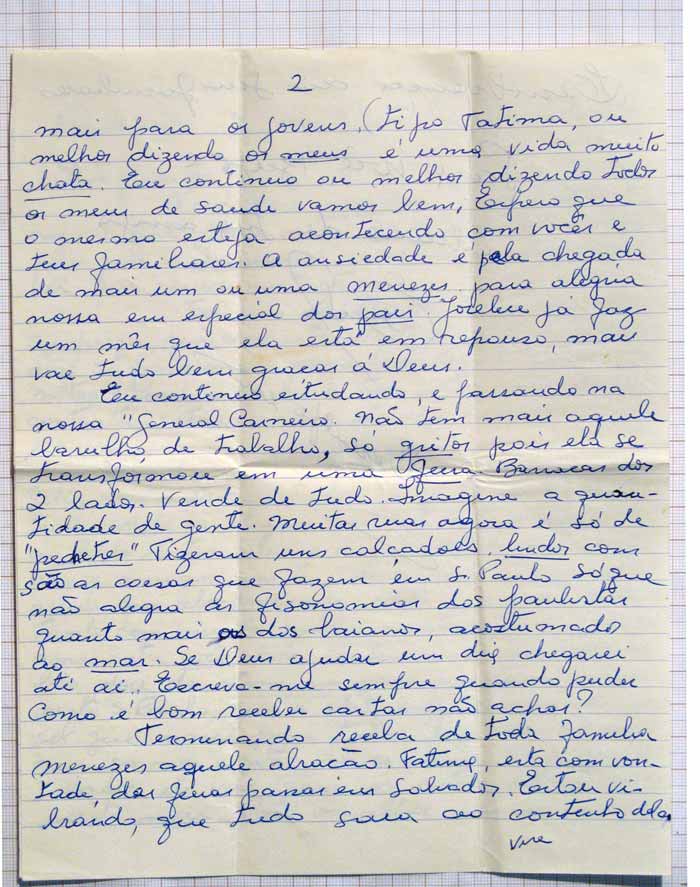 2
mais para os jovens. (tipo Fatima, ou
melhor dizendo os meus é uma vida muito
chata. Eu continuo ou melhor dizendo todos
os meus de saude vamos bem. Espero que
o mesmo esteja acontecendo com vocês e
teus familhares. A ansiedade é pela chegada
de mais um ou uma menezes para alegria
nossa em especial dos pais. Joselene já faz
um mês que ela está em repouso, mas
vae tudo bem graças á Deus.
Eu continuo estudando, e passando na
nossa "General Carneiro. Não tem mais aquele
barulho, de trabalho, só gritos pois ela se
transformou em uma feira. Barracas dos
2 lados. Vende de tudo. Imagine a quan-
tidade de gente. Muitas ruas agora é só de
"pedestres" Fizeram uns calçadões lindos com
são as coisas que fazem em S. Paulo só que
não alegra as fisonomias dos paulistas
quanto mais dos baianos, acostumados
ao mar. Se Deus ajudar um dia chegarei
até ai. Escreva-me sempre quando puder
Como é bom receber cartas não achas?
Terminando receba de toda familia
menezes aquele abração. Fatima, esta com von-
tade, das férias passar em Salvador. Estou vi-
brando, que tudo saia ao contento dela
vire